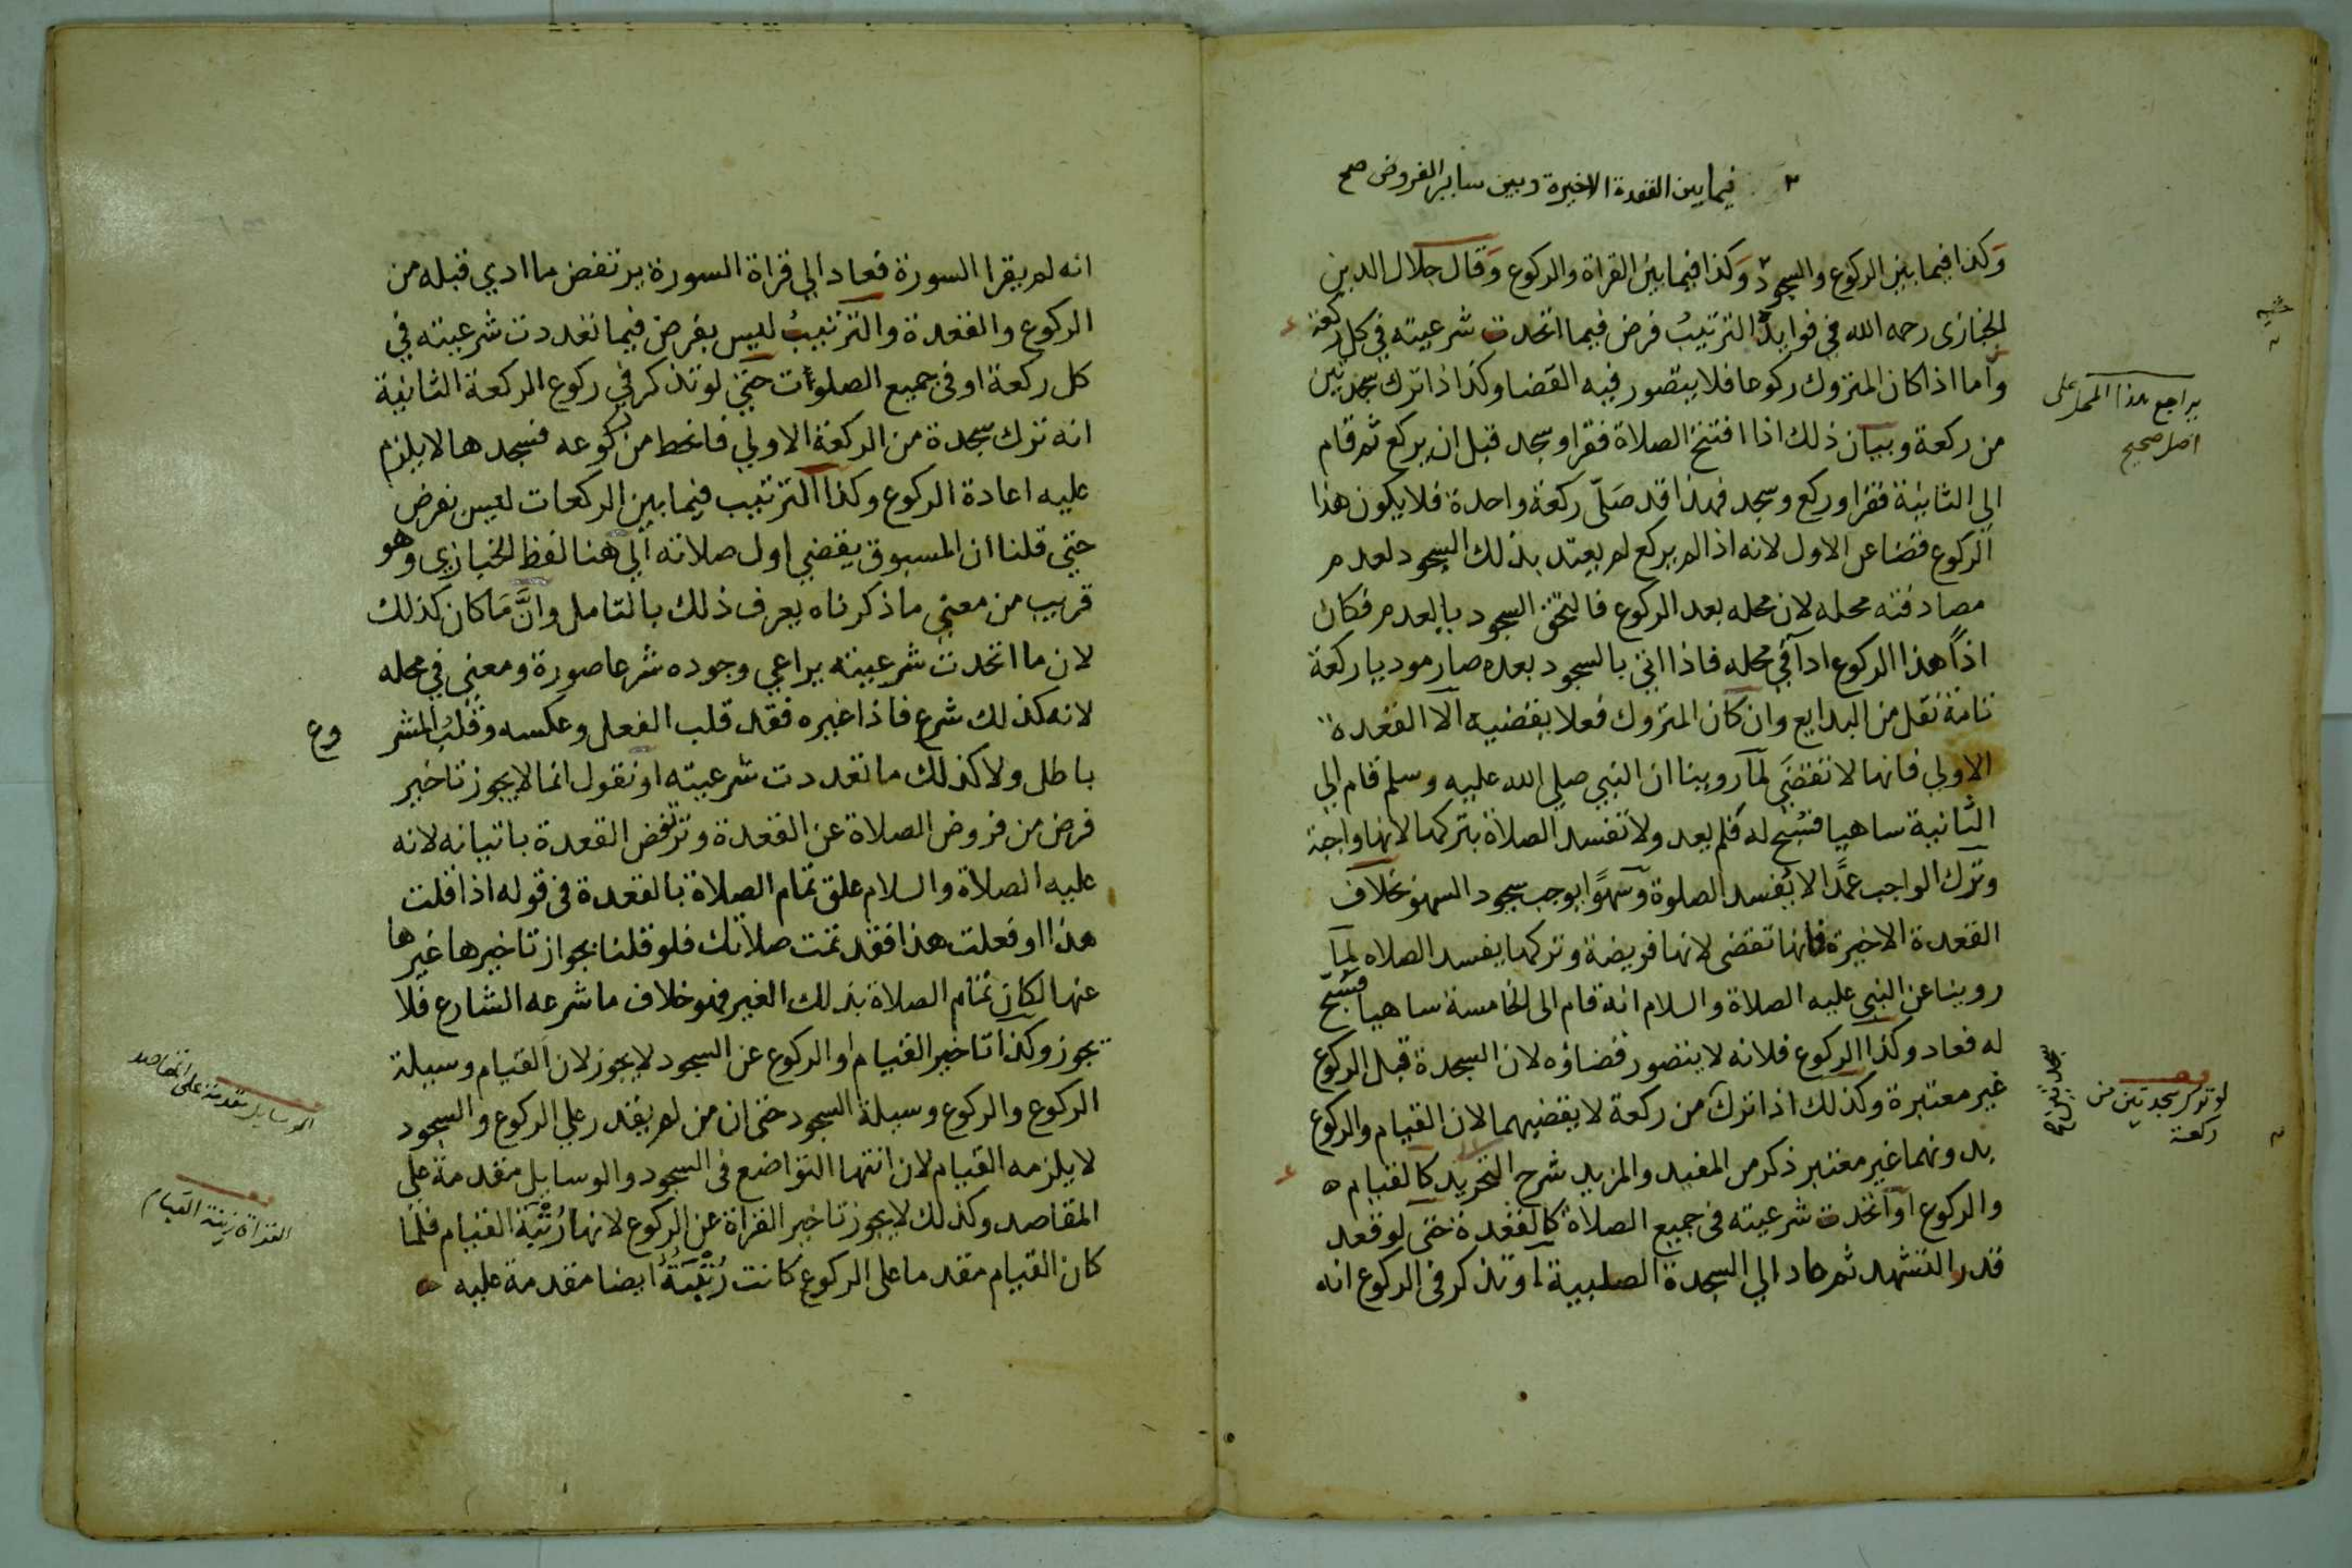 ٢ فيما بين القعدة الاخيرة وبين ساير الفروض صح
وكذا فيما بين الركوع والسجود ٢ وكذا فيما بين القراة والركوع وقال جلال الدين
الخبازى رحمه الله في فوايده الترتيب فرض فيما اتحدت شرعيته في كل ركعة
واما اذا كان المتروك ركوعا فلا يتصور فيه القضا وكذا اذا ترك سجدتين
من ركعة وبيان ذلك اذا افتتح الصلاة فقرا وسجد قبل ان يركع ثم قام
الي الثانية فقرا وركع وسجد فهذا قد صلّى ركعة واحدة فلا يكون هذا
الركوع قضا عن الاول لانه اذا لم يركع لم يعتد بذلك السجود لعدم
مصادفته محله لان محله بعد الركوع فالتحق السجود بالعدم فكان
اذاً هذا الركوع ادآ في محله فاذا اتى بالسجود بعده صار موديا ركعة
تامة نقل من البدايع وان كان المتروك فعلا يقضيه الا القعدة
الاولي فانها لا تقضَي لما روينا ان النبي صلي الله عليه وسلم قام الي
الثانية ساهيا فسُبح له فلم يعد ولا تفسد الصلاة بتركها لانها واجبة
وترك الواجب عمدًا لا يُفسد الصلوة وسهوًا يوجب سجود السهو بخلاف
القعدة الاخيرة فانها تقضى لانها فريضة وتركها يفسد الصلاه لما
روينا عن النبي عليه الصلاة والسلام انه قام الى الخامسة ساهيا فسُبّح
له فعاد وكذا الركوع فلانه لا يتصور قضاؤه لان السجدة قبل الركوع
غير معتبرة وكذلك اذا ترك من ركعة لا يقضيهما لان القيام والركوع
بدونهما غير معتبر ذكر من المفيد والمزيد شرح التجريد كالقيام ه
والركوع او اتحدت شرعيته في جميع الصلاة كالقعدة حتى لو قعد
قدر التشهد ثم عاد الي السجدة الصلبية او تذكر في الركوع انه
يراجع هذا المحل على
اصل صحيح
سجدتين صح
لو تذكر سجدتين من
ركعة
انه لم يقرا السورة فعاد الي قراة السورة يرتفض ما ادي قبله من
الركوع والقعدة والترتيبُ ليس بفرض فيما تعددت شرعيته في
كل ركعة او في جميع الصلوات حتى لو تذكر في ركوع الركعة الثانية
انه ترك سجدة من الركعة الاولي فانحط من ركوعه فسجدها لا يلزم
عليه اعادة الركوع وكذا الترتيب فيما بين الركعات ليس بفرض
حتى قلنا ان المسبوق يقضي اول صلاته الي هنا لفظ الخبازي وهو
قريب من معنى ما ذكرناه يعرف ذلك بالتامل وانَّمَا كان كذلك
لان ما اتحدت شرعيته يراعي وجوده شرعا صورة ومعنى في محله
لانه كذلك شرع فاذا غيره فقد قلب الفعل وعكسه وقلبُ المشر وع
باطل ولا كذلك ما تعددت شرعيته او نقول انما لا يجوز تاخير
فرض من فروض الصلاة عن القعدة وترتفض القعدة باتيانه لانه
عليه الصلاة والسلام علق تمام الصلاة بالقعدة في قوله اذا قلت
هذا او فعلت هذا فقد تمت صلاتك فلو قلنا بجواز تاخيرها غيرها
عنها لكان تمام الصلاة بذلك الغير فهو خلاف ما شرعه الشارع فلا
يجوز وكذا تاخير القيام او الركوع عن السجود لا يجوز لان القيام وسيلة
الركوع والركوع وسيلة السجود حتى ان من لم يقدر علي الركوع والسجود
لا يلزمه القيام لان انتها التواضع في السجود والوسايل مقدمة على
المقاصد وكذلك لا يجوز تاخير القراة عن الركوع لانها زينة القيام فلما
كان القيام مقدما على الركوع كانت زينتهُ ايضا مقدمة عليه ه
الوسايل مقدمة على المقاصد
القراة زينة القيام